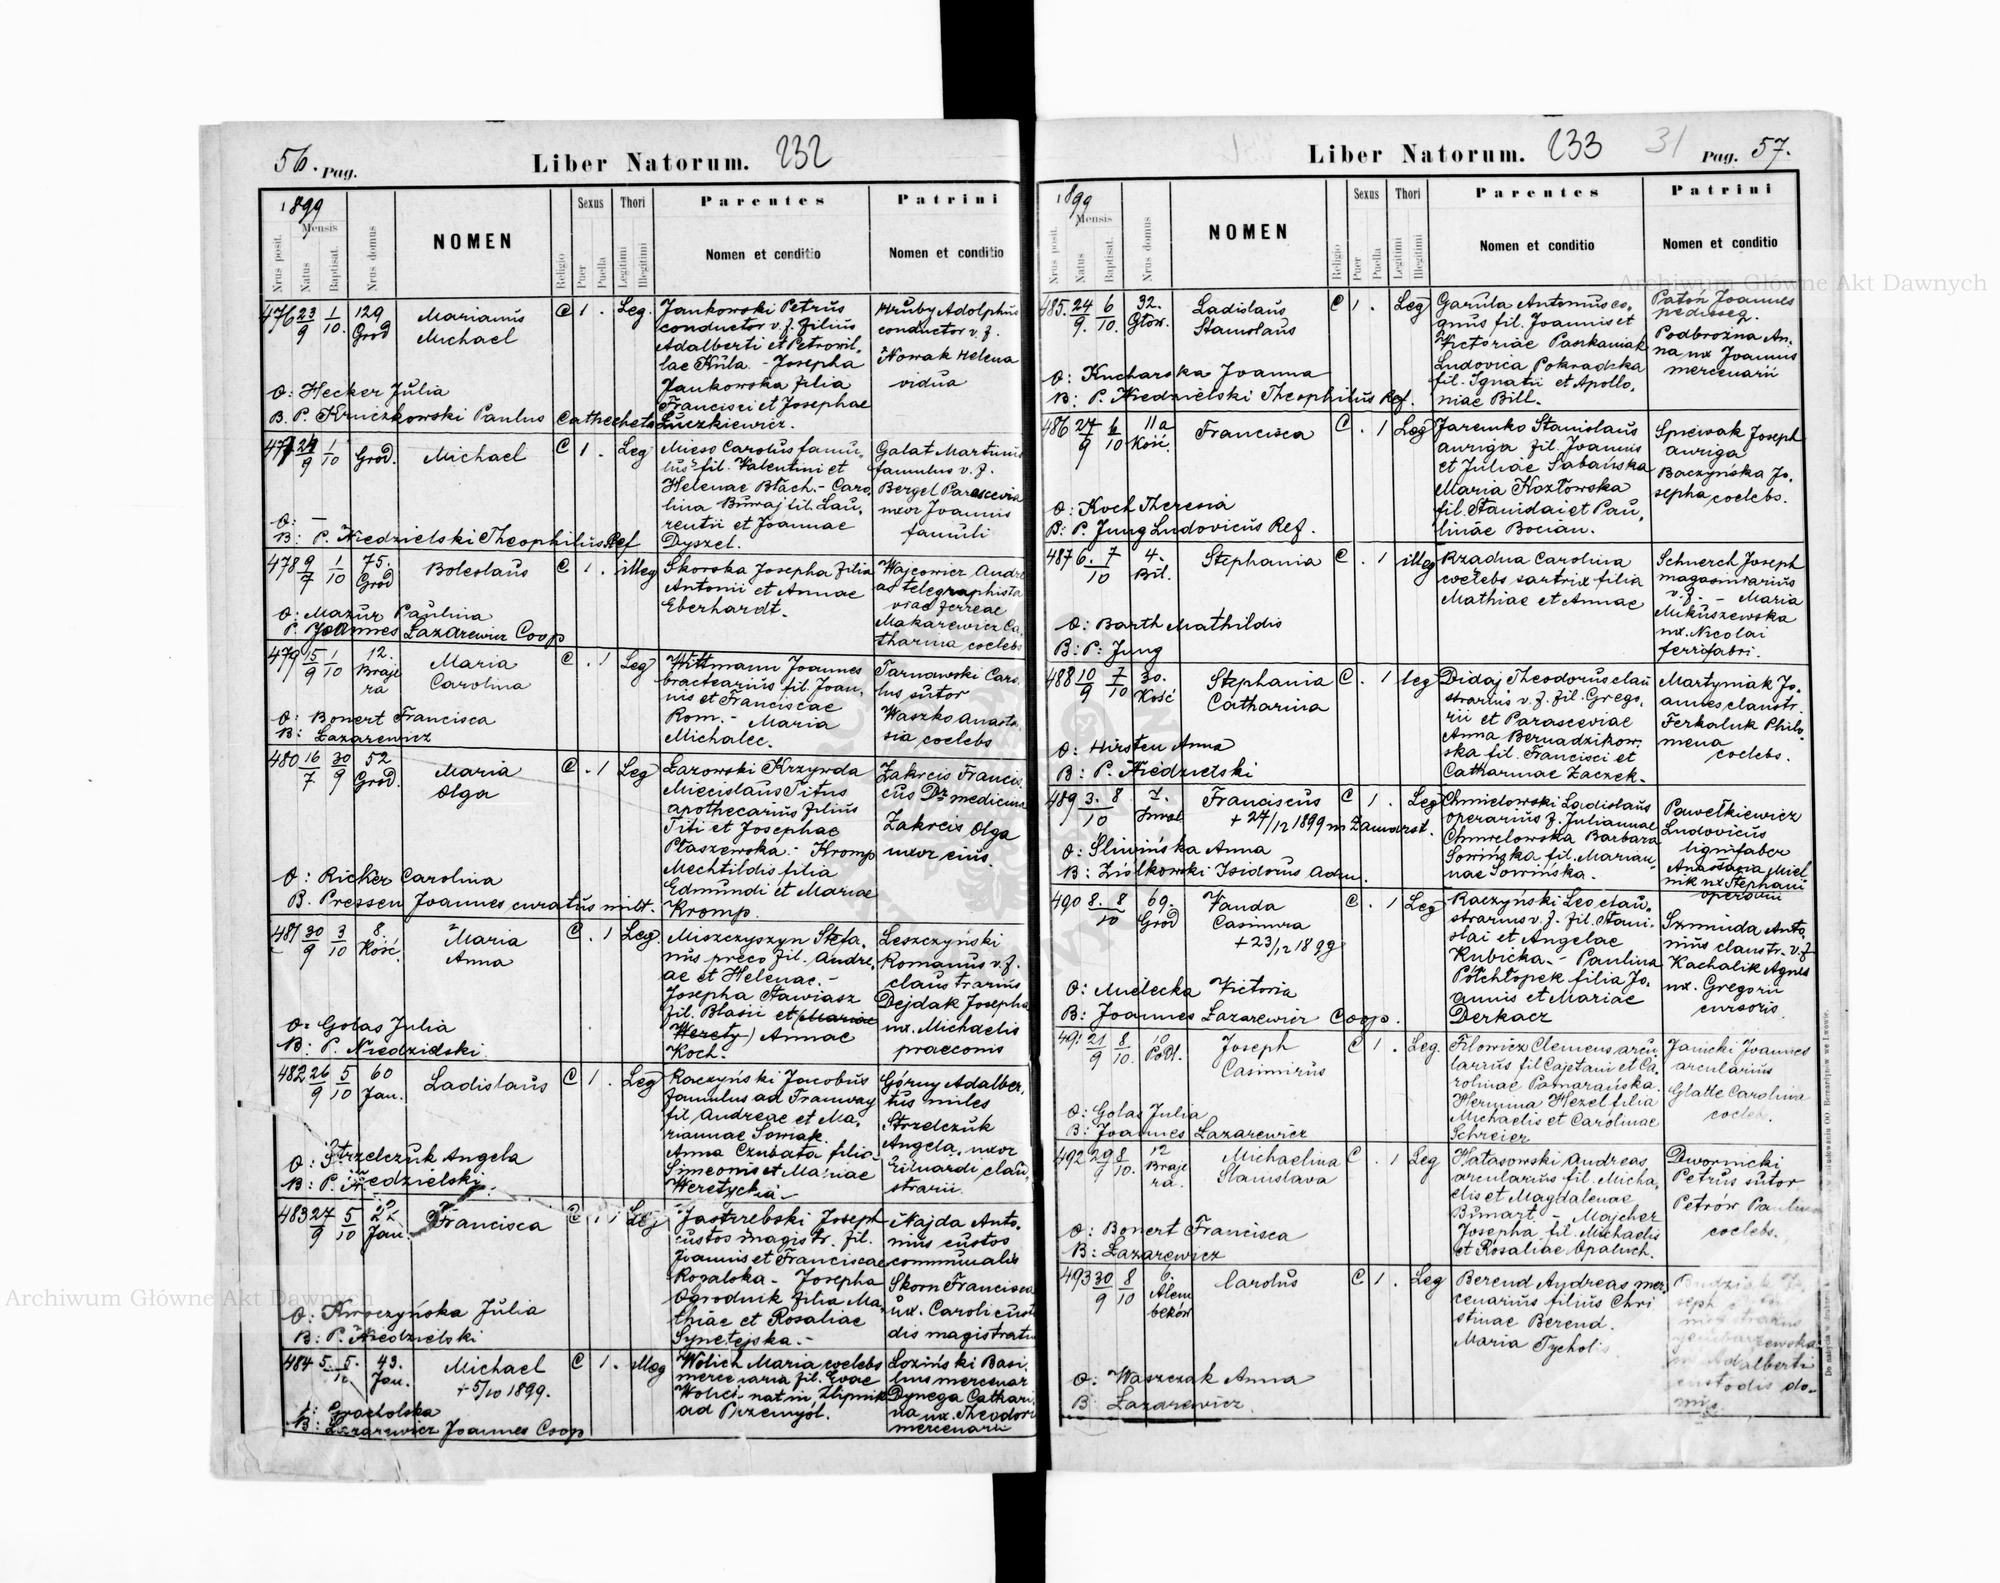 56. Pag.
Liber Natorum. 232
1899
Mensis
Nrus posit.
Natus
Baptisat.
Nrus domus
NOMEN
Religio
Sexus
Puer
Puella
Thori
Legitimi
Illegitimi
Parentes
Nomen et conditio
Patrini
Nomen et conditio
476 23/9 1/10. 129 Grod
Marianus
Michael
C 1 . Leg.
Jankowski Petrus
conductor v. f. filius
Adalberti et Petronil,
lae Kula. - Josepha
Jankowska filia
Francisci et Josephae
Łuczkiewicz.
Hruby Adolphus
conductor v. f.
Nowak Helena
vidua
O: Hecker Julia
B. P. Kruczkowski Paulus Cathecheta
477 24/9 1/10 Grod.
Michael
C 1 . Leg
Mieso Carolus famu,
lus fil. Valentini et
Helenae Błach. - Caro,
lina Buwaj fil. Lau,
rentii et Joannae
Dyszel.
Galat Martinus
famulus v. f.
Bergel Parascevia
uxor Joannis
famuli
O: -
B: P. Niedzielski Theophilus Ref
478 9/7 1/10 75. Grod
Boleslaus
C 1 . illeg
Skorska Josepha filia
Antonii et Annae
Eberhardt.
Wajcowicz Andre
as telegraphista
viae ferreae
Makarewicz Ca,
tharina coelebs
O: Mazur Paulina
P. Joannes Łazarewicz Coop
479 15/9 1/10 12. Braje
ra
Maria
Carolina
C . 1 Leg
Wittmann Joannes
bractearius fil. Joan,
nis et Franciscae
Rom. - Maria
Michalec.
Tarnawski Caro,
lus sutor
Waszko Anasta,
sia coelebs
O: Bonert Francisca
B: Łazarewicz
480 16/7 30/9 52 Grod.
Maria
Olga
C . 1 Leg
Łazowski Krzywda
Miecislaus Titus
apothecarius filius
Titi et Josephae
Ptaszewska. - Kromp
Mechtildis filia
Edmundi et Mariae
Kromp.
Zakreis Francis
cus Dr medicinae
Zakreis Olga
uxor eius.
O: Ricker Carolina
B. Pressen Joannes curatus milit.
481 30/9 3/10 8. Kość.
Maria
Anna
C . 1 Leg.
Miszczyszyn Stefa,
nus preco fil. Andre,
ae et Helenae. -
Josepha Stawiasz
fil. Blasii et (Mariae
Werety) Annae
Koch.
Leszczyński
Romanus v. f.
claustrarius
Dejdak Josepha
ux. Michaelis
praeconis
O: Golas Julia
B: P. Niedzielski
482 26/9 5/10 60 Jan.
Ladislaus
C 1 . Leg
Raczyński Jacobus
famulus ad Tramway
fil. Andreae et Ma,
riannae Sowiak.
Anna Czubata filia
Simeonis et Mariae
Weretycka
Górny Adalber,
tus miles
Strzelczuk
Angela, uxor
Eduardi clau,
strarii.
O: Strzelczuk Angela
B: P. Niedzielski.
483 27/9 5/10 Jan.
Francisca
C . 1 Leg
Jastrzebski Joseph
custos magistr. fil.
Joannis et Franciscae
Rogalska - Josepha
Ogrodnik filia Ma,
thiae et Rosaliae
Synetejska. -
Najda Anto,
nius custos
communalis
Skorn Francisca
ux. Caroli custo
dis magistratu
O: Kroczyńska Julia
B: P. Niedzielski
484 5. 5. 43. Jan.
Michael
+ 5/10 1899.
C 1 . illeg
Wolich Maria coelebs
mercenaria fil. Evae
Wolich nat in Zlipnik
ad Przemyśl.
Loziński Basi,
lius mercenar
Dynega Cathari,
na ux. Theodori
mercenarii
O: Gracholska
B: Łazarewicz Joannes Coop
Liber Natorum. 233 31 Pag. 57.
1899
Mensis
Nrus posit.
Natus
Baptisat.
Nrus domus
NOMEN
Religio
Sexus
Puer
Puella
Thori
Legitimi
Illegitimi
Parentes
Nomen et conditio
Patrini
Nomen et conditio
485. 24/9. 6/10. 32. Głow.
Ladislaus
Stanislaus
C 1 . Leg
Garula Antonius co,
quus fil. Joannis et
Victoriae Paszkaniak
Ludovica Pokradzka
fil. Ignatii et Apollo,
niae Bill.
Patoń Joannes
pedisseq.
Podbrożna An,
na ux Joannis
mercenarii
O: Kucharska Joanna
B: P. Niedzielski Theophilus Ref.
486 27/9 6/10 11a Kość.
Francisca
C . 1 Leg
Jaremko Stanislaus
auriga fil. Joannis
et Juliae Sabańska
Maria Kozłowska
fil. Stanislai et Pau,
linae Bocian.
Spiewak Joseph
auriga
Baczyńska Jo,
sepha coelebs.
O: Koch Theresia
B: P. Jung Ludovicus Ref.
487 6. 7/10 4. Bil.
Stephania
C . 1 illeg
Rzadna Carolina
coelebs sartrix filia
Mathiae et Annae
Schnerch Joseph
magasiniarius
v. f. - Maria
Mikuszewska
ux. Nicolai
ferrifabri.
O: Barth Mathildis
B: P: Jung
488 10/9 7/10 30. Kość
Stephania
Catharina
C . 1 leg
Didaj Theodorus clau
strarius v. f. fil. Grego,
rii et Parasceviae
Anna Bernadzikow,
ska fil. Francisci et
Catharinae Zaczek.
Martyniak Jo,
annes claustr.
Ferkaluk Philo,
mena
coelebs.
O: Hirsten Anna
B: P. Niedzielski
489 3. 8/10 7.
Franciscus
+ 27/12 1899 in Zamarst.
C 1 . Leg
Chmielowski Ladislaus
operarius f. Juliannae
Chmielowska Barbara
Sowińska fil. Marian,
nae Sowińska.
Pawełkiewicz
Ludovicus
lignifaber
Anastasia Miel
nik ux Stephani
operarii
O: Sliwińska Anna
B: Ziółkowski Isidorus Adm.
490 8. 8/10 69. Grod
Wanda
Casimira
+ 23/12 1899
C . 1 Leg
Raczyński Leo clau,
strarius v. f. fil. Stani,
slai et Angelae
Kubicka. - Paulina
Półchłopek filia Jo,
annis et Mariae
Derkacz
Szmida Anto,
nius claustr. v. f
Kachalik Agnes
ux. Gregorii
cursoris.
O: Mielecka Victoria
B: Joannes Łazarewicz Coop.
491 21/9 8/10. 10 Podl.
Joseph
Casimirus
C 1 . Leg.
Filowicz Clemens arcu,
larius fil Cajetani et Ca,
rolinae Pamarańska.
Hermina Hezel filia
Michaelis et Carolinae
Schreier
Janicki Joannes
arcularius
Glatte Carolina
coeleb.
O: Golas Julia
B: Joannes Łazarewicz
492 29/9 8/10. 12 Braje
ra.
Michaelina
Stanislava
C . 1 Leg
Hatasowski Andreas
arcularius fil. Micha,
elis et Magdalenae
Bumart. - Majcher
Josepha fil. Michaelis
et Rosaliae Opaluch.
Dwornicki
Petrus sutor
Petrów Paulina
coelebs.
O: Bonert Francisca
B: Łazarewicz
493 30/9 8/10 6. Alem
beków
Carolus
C 1 . Leg
Berend Andreas mer,
cenarius filius Chri
stinae Berend.
Maria Tycholis
adalberti
custodis do-
O: Waszczak Anna
B: Łazarewicz.
Archiwum Główne Akt Dawnych
Archiwum Główne Akt Dawnych